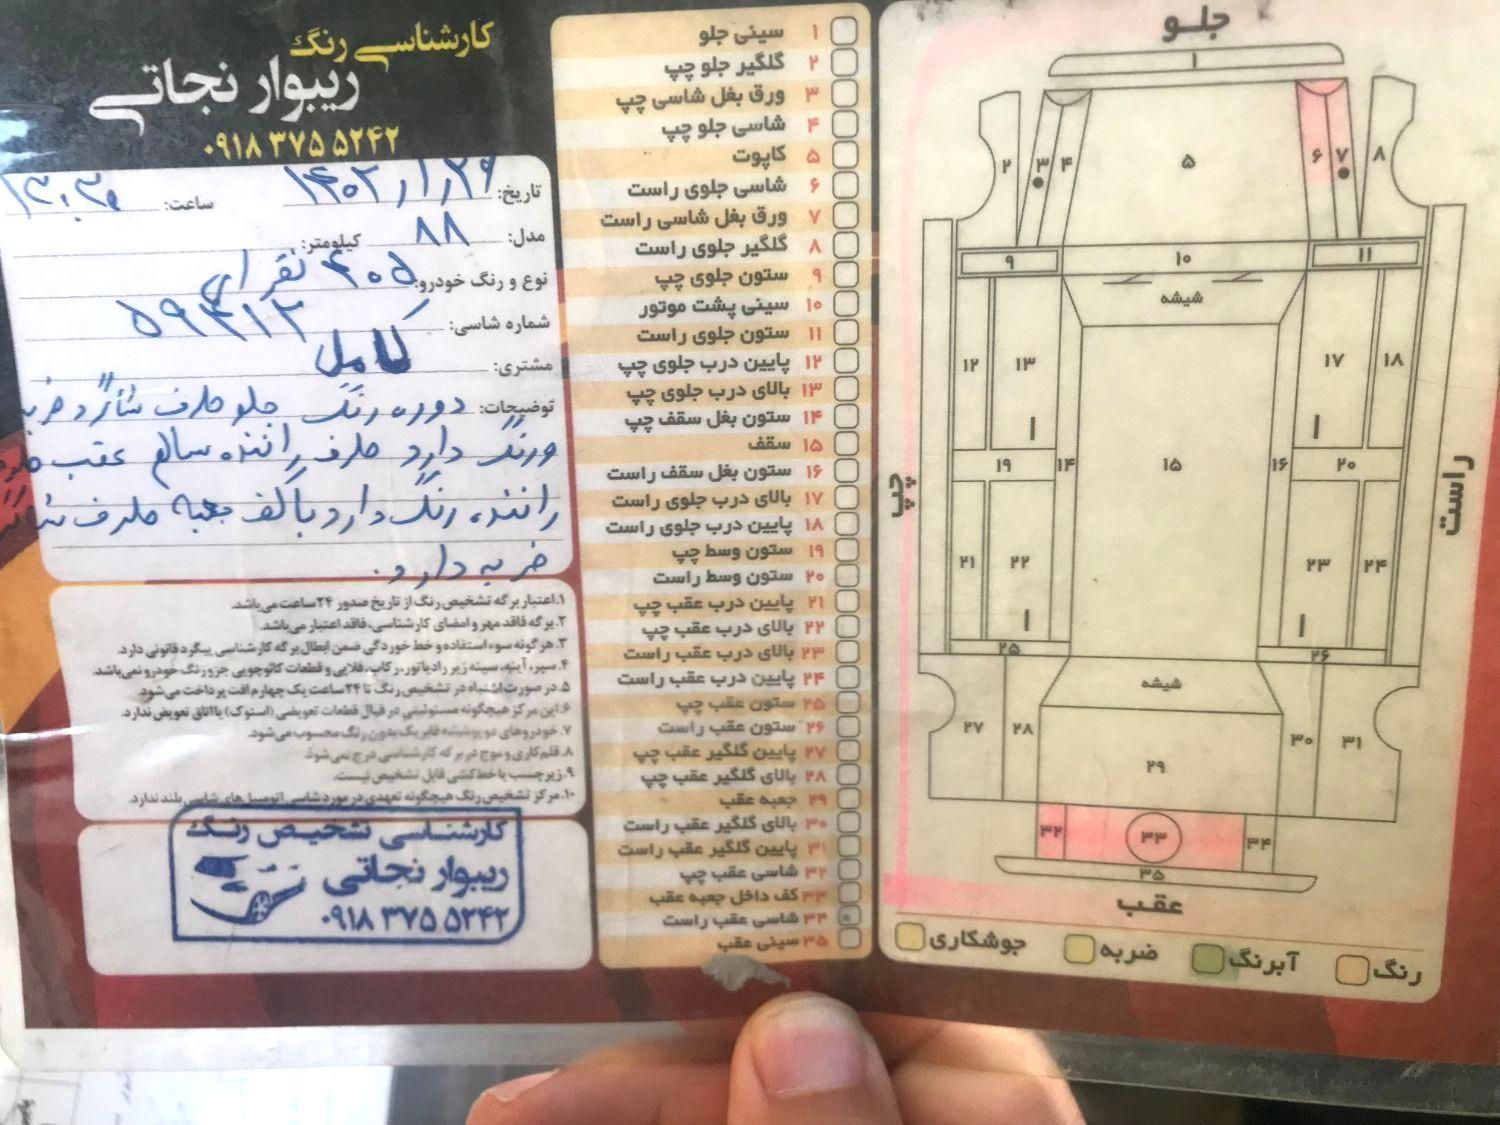 کارشناسی رنگ
ریبوار نجاتی
۰۹۱۸ ۳۷۵ ۵۲۴۲
تاریخ: ۱۴۰۲/۱/۲۹ ساعت: ۱۳:۳۰
مدل: ۸۸ کیلومتر:
نوع و رنگ خودرو: ۴۰۵ نقره ای
شماره شاسی: ۵۹۴۱۲
مشتری: کامل
توضیحات: دوره رنگ جلو طرف شاگرد ضربه
ورنگ دارد طرف راننده سالم عقب طرف
راننده رنگ دارد با کف جعبه طرف شاگرد
ضربه دارد.
۱. اعتبار برگه تشخیص رنگ از تاریخ صدور ۲۴ ساعت می‌باشد.
۲. برگه فاقد مهر و امضای کارشناسی، فاقد اعتبار می‌باشد.
۳. هرگونه سوء استفاده و خط خوردگی ضمن ابطال برگه کارشناسی پیگرد قانونی دارد.
۴. سپر، آینه، سینه زیر رادیاتور، رکاب، فلاپی و قطعات کائوچویی جزو رنگ خودرو نمی‌باشد.
۵. در صورت اشتباه در تشخیص رنگ تا ۲۴ ساعت یک چهارم افت پرداخت می‌شود.
۶. این مرکز هیچگونه مسئولیتی در قبال قطعات تعویضی (استوک) یا اتاق تعویض ندارد.
۷. خودروهای دو پوششه فابریک بدون رنگ محسوب می‌شود.
۸. قلم‌کاری و موج در برگه کارشناسی درج نمی‌شود.
۹. زیر چسب یا خط‌کشی قابل تشخیص نیست.
۱۰. مرکز تشخیص رنگ هیچگونه تعهدی در مورد شاسی اتومبیل‌های شاسی بلند ندارد.
کارشناسی تشخیص رنگ
ریبوار نجاتی
۰۹۱۸ ۳۷۵ ۵۲۴۲
۱ سینی جلو
۲ گلگیر جلو چپ
۳ ورق بغل شاسی چپ
۴ شاسی جلو چپ
۵ کاپوت
۶ شاسی جلوی راست
۷ ورق بغل شاسی راست
۸ گلگیر جلوی راست
۹ ستون جلوی چپ
۱۰ سینی پشت موتور
۱۱ ستون جلوی راست
۱۲ پایین درب جلوی چپ
۱۳ بالای درب جلوی چپ
۱۴ ستون بغل سقف چپ
۱۵ سقف
۱۶ ستون بغل سقف راست
۱۷ بالای درب جلوی راست
۱۸ پایین درب جلوی راست
۱۹ ستون وسط چپ
۲۰ ستون وسط راست
۲۱ پایین درب عقب چپ
۲۲ بالای درب عقب چپ
۲۳ بالای درب عقب راست
۲۴ پایین درب عقب راست
۲۵ ستون عقب چپ
۲۶ ستون عقب راست
۲۷ پایین گلگیر عقب چپ
۲۸ بالای گلگیر عقب چپ
۲۹ جعبه عقب
۳۰ بالای گلگیر عقب راست
۳۱ پایین گلگیر عقب راست
۳۲ شاسی عقب چپ
۳۳ کف داخل جعبه عقب
۳۴ شاسی عقب راست
۳۵ سینی عقب
جلو
۱
۲ ۳ ۴ ۵ ۶ ۷ ۸
۹ ۱۰ ۱۱
شیشه
۱۲ ۱۳ ۱۷ ۱۸
چپ ۱۹ ۱۴ ۱۵ ۱۶ ۲۰ راست
۲۱ ۲۲ ۲۳ ۲۴
۲۵ ۲۶
شیشه
۲۷ ۲۸ ۲۹ ۳۰ ۳۱
۳۲ ۳۳ ۳۴
۳۵
عقب
رنگ آبرنگ ضربه جوشکاری